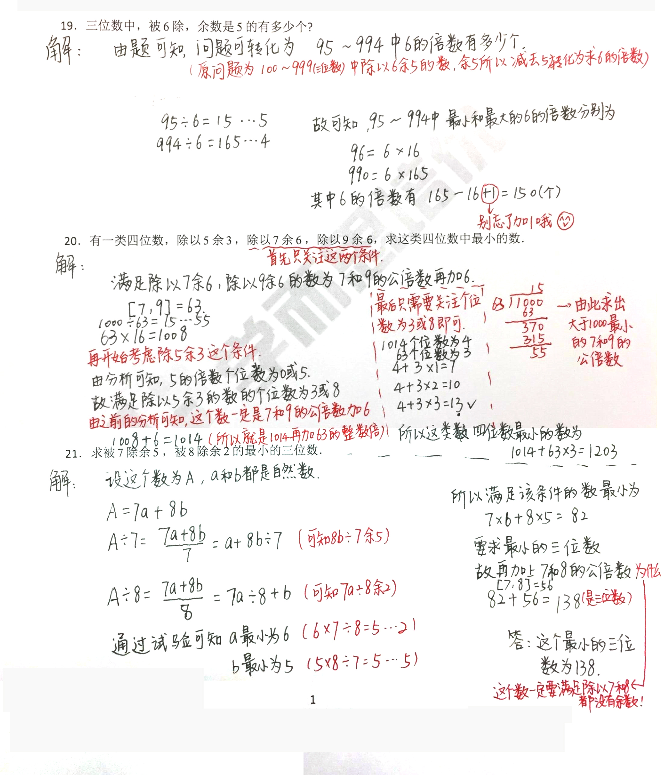 19．三位数中，被6除，余数是5的有多少个？
解：由题可知，问题可转化为 95～994中6的倍数有多少个．
（原问题为100～999(三位数)中除以6余5的数，余5所以减去5转化为求6的倍数）
95÷6=15…5
994÷6=165…4
故可知，95～994中最小和最大的6的倍数分别为
96=6×16
990=6×165
其中6的倍数有 165-16+1=150(个)
别忘了加1哦
20．有一类四位数，除以5余3，除以7余6，除以9余6，求这类四位数中最小的数．
首先只关注这两个条件．
解：
满足除以7余6，除以9余6的数为7和9的公倍数再加6．
[7,9]=63．
1000÷63=15…55
63×16=1008
再开始考虑除5余3这个条件．
由分析可知，5的倍数个位数为0或5．
故满足除以5余3的数的个位数为3或8
由之前的分析可知，这个数一定是7和9的公倍数加6
1008+6=1014（所以就是1014再加63的整数倍）
最后只需要关注个位
数为3或8即可．
1014个位数为4
63个位数为3
4+3×1=7
4+3×2=10
4+3×3=13✓
15
63 1000
63
370
315
55
→由此求出
大于1000最小
的7和9的
公倍数
所以这类数四位数最小的数为
1014+63×3=1203
21．求被7除余5，被8除余2的最小的三位数．
解：设这个数为A，a和b都是自然数．
A=7a+8b
A÷7=7a+8b/7=a+8b÷7（可知8b÷7余5）
A÷8=7a+8b/8=7a÷8+b（可知7a÷8余2）
通过试验可知a最小为6（6×7÷8=5…2）
b最小为5（5×8÷7=5…5）
所以满足该条件的数最小为
7×6+8×5=82
要求最小的三位数
故再加上7和8的公倍数为什么
[7,8]=56
82+56=138(是三位数)
答：这个最小的三位
数为138．
这个数一定要满足除以7和8
都没有余数！
1